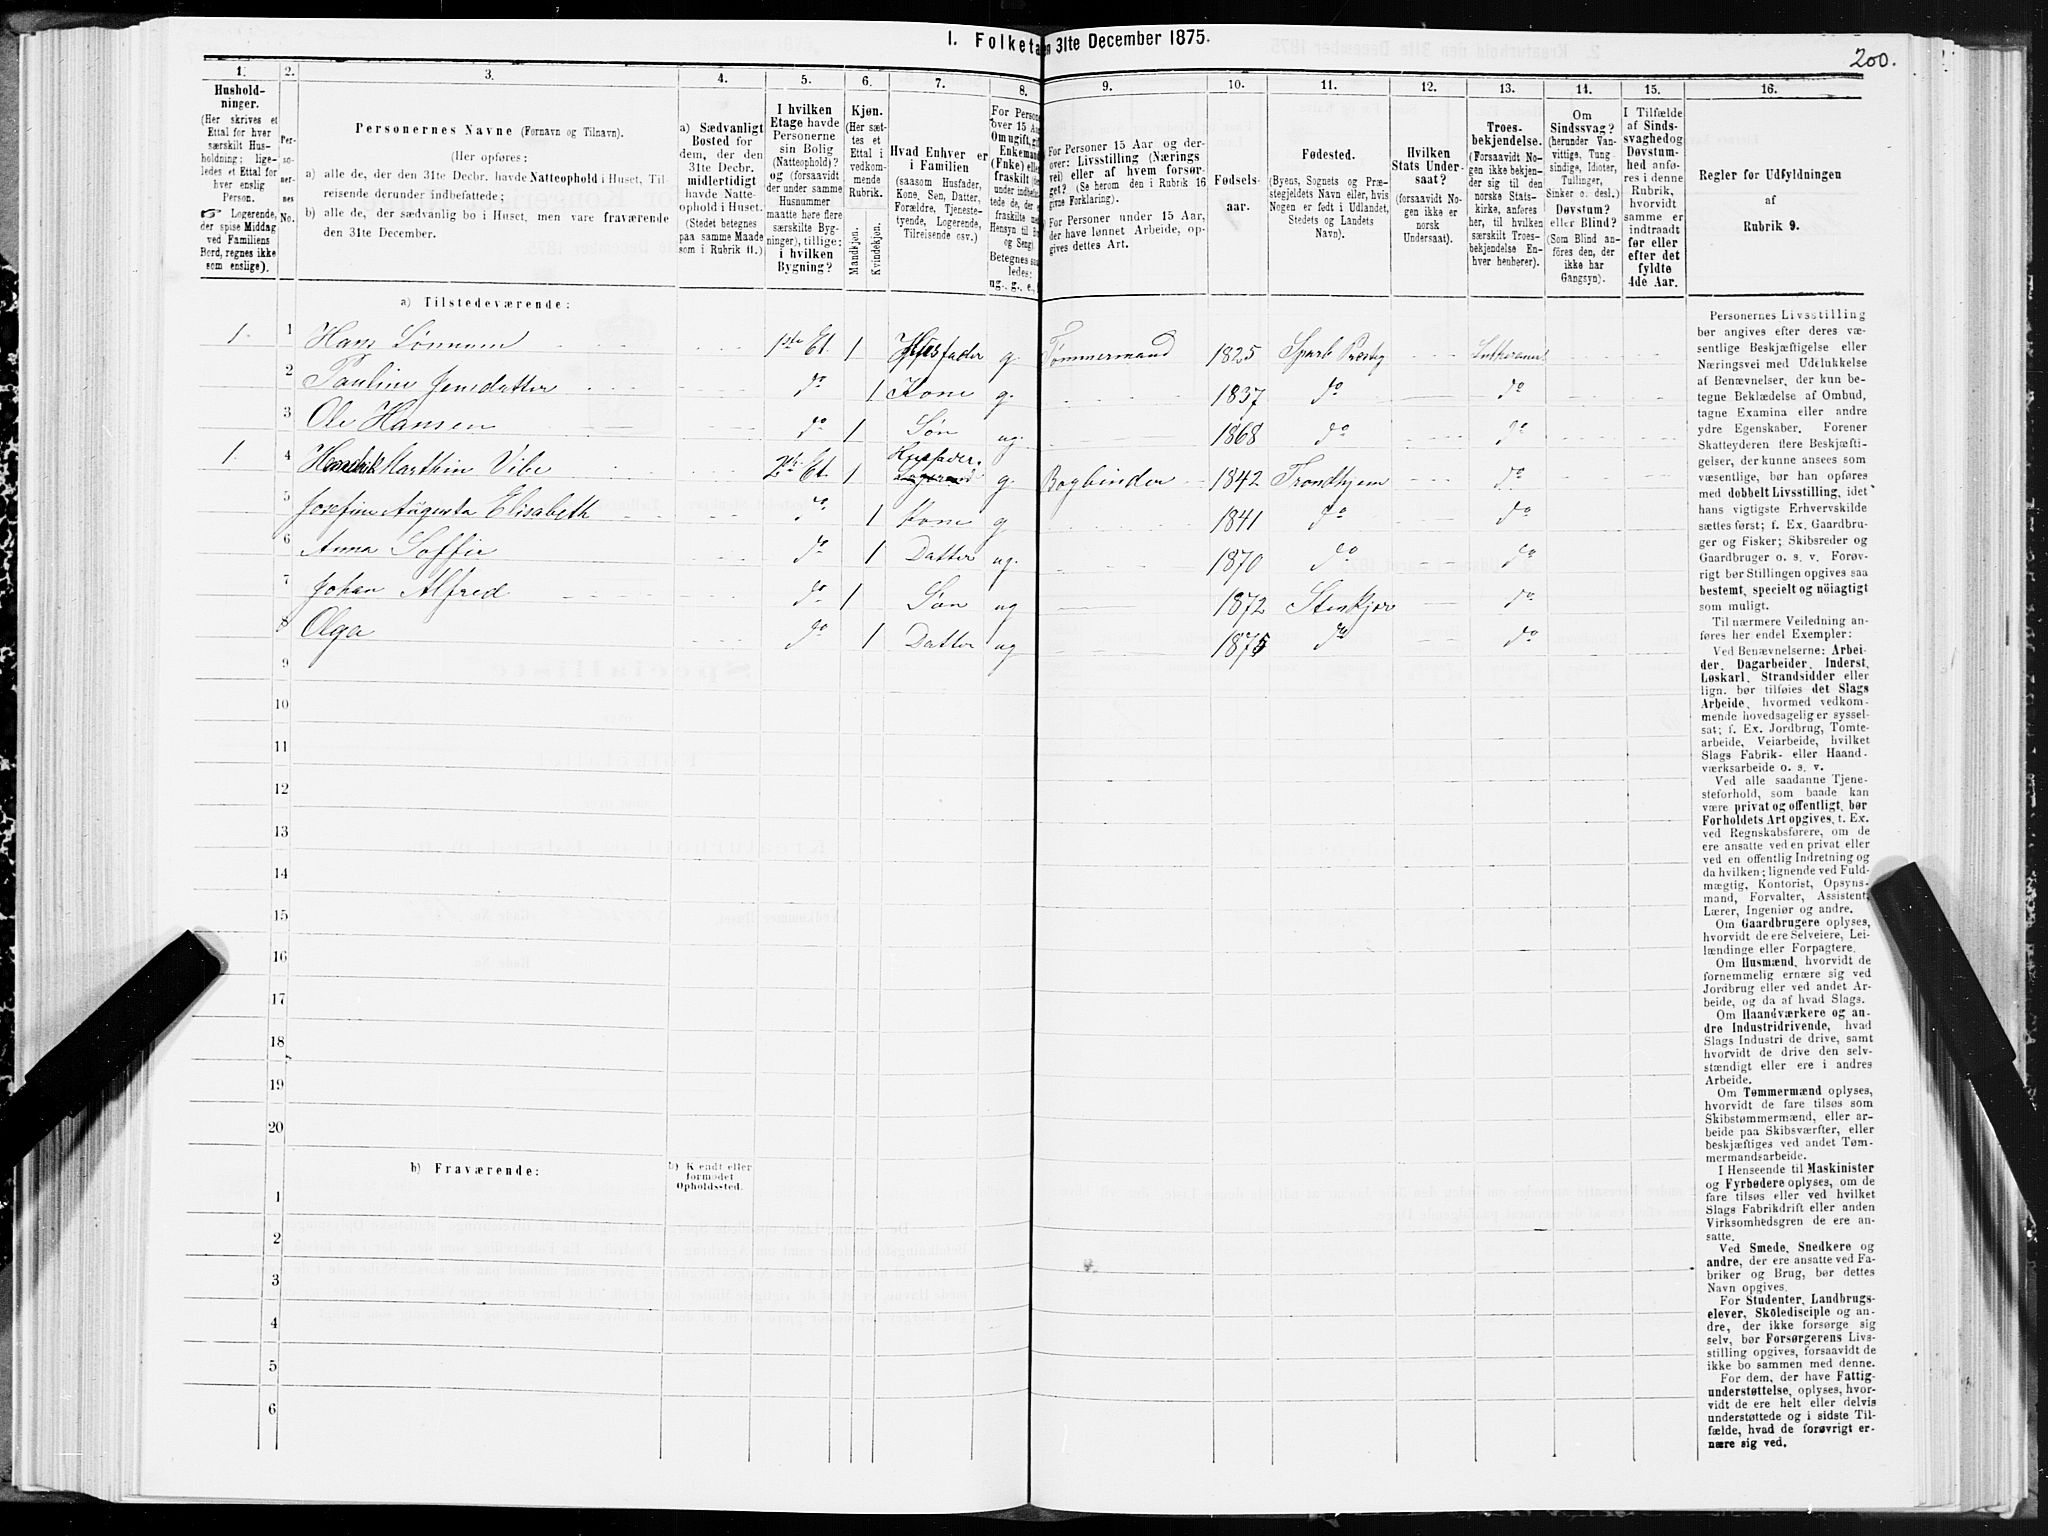 I. Folketa en 31te December 1875.
200.
1.
Hushold-
ninger.
(Her skrives et
Ettal for hver
særskilt Hus-
holdning; lige-
ledes et Ettal for
hver enslig
Person.
☞ Logerende,
der spise Middag
ved Familiens
Bord, regnes ikke
som enslige).
2.
Per-
so-
ner-
nes
No.
3.
Personernes Navne (Fornavn og Tilnavn).
(Her opføres:
a) alle de, der den 31te Decbr. havde Natteophold i Huset, Til-
reisende derunder indbefattede;
b) alle de, der sædvanlig bo i Huset, men vare fraværende
den 31te December.
4.
a) Sædvanligt
Bosted for
dem, der den
31te Decbr.
midlertidigt
havde Natte-
ophold i Huset.
(Stedet betegnes
paa samme Maade
som i Rubrik 11.)
5.
I hvilken
Etage havde
Personerne
sin Bolig
(Natteophold)?
og (forsaavidt
der under samme
Husnummer
maatte høre flere
særskilte Byg-
ninger), tillige:
i hvilken
Bygning?
6.
Kjøn.
(Her sæt-
tes et
Ettal i
vedkom-
mende
Rubrik.
Mandkjøn.
Kvindekjøn.
7.
Hvad Enhver er
i Familien
(saasom Husfader,
Kone, Søn, Datter,
Forældre, Tjeneste-
tyende, Logerende,
Tilreisende osv.)
8.
For Person
over 15 Aa
Om ugift, gif
Enkemand
(Enke) elle
fraskilt (de
under indbe
tede de, de e
fraskilte m
Hensyn til Bo
og Seng).
Betegnes saa
ledes:
ug., g., e.,
9.
For Personer 15 Aar og der-
over: Livsstilling (Nærings
vei) eller af hvem forsør-
get? (Se herom den i Rubrik 16
givne Forklaring).
For Personer under 15 Aar,
der have lønnet Arbeide, op-
gives dettes Art.
10.
Fødsels-
aar.
11.
Fødested.
(Byens, Sognets og Præ-
stegjeldets Navn eller, hvis
Nogen er født i Udlandet,
Stedets og Landets
Navn).
12.
Hvilken
Stats Under-
saat?
(forsaavidt No-
gen ikke er
norsk
Undersaat).
13.
Troes-
bekjendelse.
(Forsaavidt No-
gen ikke bekjen-
der sig til den
norske Stats-
kirke, anføres
her, til hvilken
særskilt Troes-
bekjendelse En-
hver henhører).
14.
Om
Sindssvag?
(herunder Van-
vittige, Tung-
sindige, Idioter,
Tullinger,
Sinker o. desl.)
Døvstum?
eller Blind?
(Som Blind an-
føres den, der
ikke har
Gangsyn).
15.
I Tilfælde
af Sinds-
svaghed og
Døvstum-
hed anfø-
res i denne
Rubrik,
hvorvidt
samme er
indtraadt
før eller
efter det
fyldte
4de Aar.
16.
Regler for Udfyldningen
af
Rubrik 9.
a) Tilstedeværende:
1. 1 Hans Lönnum 1ste Et. 1 Husfader g. Tømmermand 1825 Sparb Præstg Lutheraner
2 Pauline Jensdatter do 1 Kone g. 1837 do do
3 Ole Hansen do 1 Søn ug. 1868 do do
1. 4 Marthin Vibe 2den Et. 1 Husfader. g. Bogbinder 1842 Trondhjem do
5 Josefine Augusta Elisabeth do 1 Kone g 1841 do do
6 Anna Soffie do 1 Datter ug. 1870 do do
7 Johan Alfred do 1 Søn ug 1872 Stenkjær do
8 Olga do 1 Datter ug 1875 do do
9
10
11
12
13
14
15
16
17
18
19
20
b) Fraværende:
b) Kjendt eller
formodet
Opholdssted.
1
2
3
4
5
6
Personernes Livsstilling
bør angives efter deres væ-
sentlige Beskjæftigelse eller
Næringsvei med Udelukkelse
af Benævnelser, der kun be-
tegne Beklædelse af Ombud,
tagne Examina eller andre
ydre Egenskaber. Forener
Skatteyderen flere Beskjæfti-
gelser, der kunne ansees som
væsentlige, bør han opføres
med dobbelt Livsstilling, idet
hans vigtigste Erhvervskilde
sættes først; f. Ex. Gaardbru-
ger og Fisker; Skibsreder og
Gaardbruger o. s. v. Forøv-
rigt bør Stillingen opgives saa
bestemt, specielt og nöiagtigt
som muligt.
Til nærmere Veiledning an-
føres her endel Exempler:
Ved Benævnelserne: Arbei-
der, Dagarbeider, Inderst,
Løskarl, Strandsidder eller
lign. bør tilføies det Slags
Arbeide, hvormed vedkom-
mende hovedsagelig er syssel-
sat; f. Ex. Jordbrug, Tomte-
arbeide, Veiarbeide, hvilket
Slags Fabrik- eller Haand-
værksarbeide o. s. v.
Ved alle saadanne Tjene-
steforhold, som baade kan
være privat og offentligt, bør
Forholdets Art opgives, t. Ex.
ved Regnskabsførere, om de
ere ansatte ved en privat eller
ved en offentlig Indretning og
da hvilken; lignende ved Fuld-
mægtig, Kontorist, Opsyns-
mand, Forvalter, Assistent,
Lærer, Ingeniør og andre.
Om Gaardbrugere oplyses,
hvorvidt de ere Selveiere, Lei-
lændinge eller Forpagtere.
Om Husmænd, hvorvidt de
fornemmelig ernære sig ved
Jordbrug eller ved andet Ar-
beide, og da af hvad Slags.
Om Haandværkere og an-
dre Industridrivende, hvad
Slags Industri de drive, samt
hvorvidt de drive den selv-
stændigt eller ere i andres
Arbeide.
Om Tømmermænd oplyses,
hvorvidt de fare tilsøs som
Skibstømmermænd, eller ar-
beide paa Skibsværfter, eller
beskjæftiges ved andet Tøm-
mermandsarbeide.
I Henseende til Maskinister
og Fyrbødere oplyses, om de
fare tilsøs eller ved hvilket
Slags Fabrikdrift eller anden
Virksomhedsgren de ere an-
satte.
Ved Smede, Snedkere og
andre, der ere ansatte ved Fa-
briker og Brug, bør dettes
Navn opgives.
For Studenter, Landbrugs-
elever, Skoledisciple og an-
dre, der ikke forsørge sig
selv, bør Forsørgerens Livs-
stilling opgives, forsaavidt de
ikke bo sammen med denne.
For dem, der have Fattig-
understøttelse, oplyses, hvor-
vidt de ere helt eller delvis
understøttede og i sidste Til-
fælde, hvad de forøvrigt er-
nære sig ved.